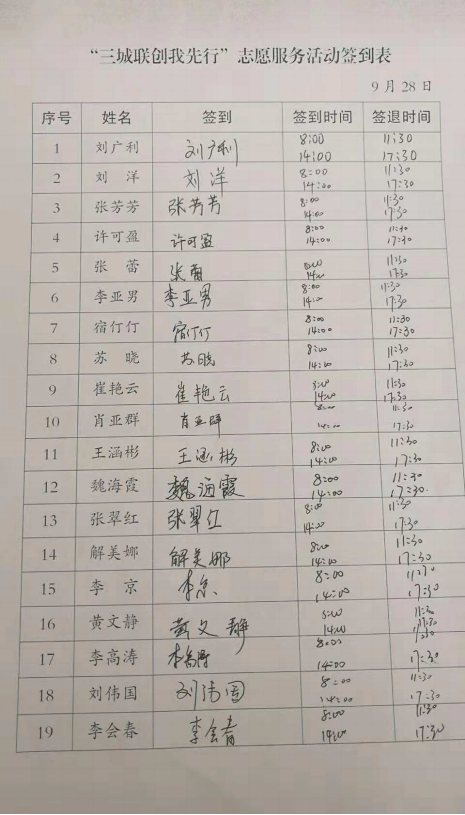 “三城联创我先行”志愿服务活动签到表
9月28日
序号 姓名 签到 签到时间 签退时间
1 刘广利 刘广利 8:00 11:30
14:00 17:30
2 刘 洋 刘洋 8:00 11:30
14:00 17:30
3 张芳芳 张芳芳 8:00 11:30
14:00 17:30
4 许可盈 许可盈 8:00 11:30
14:00 17:30
5 张 蕾 张蕾 8:00 11:30
14:00 17:30
6 李亚男 李亚男 8:00 11:30
14:00 17:30
7 宿仃仃 宿仃仃 8:00 11:30
14:00 17:30
8 苏 晓 苏晓 8:00 11:30
14:00 17:30
9 崔艳云 崔艳云 8:00 11:30
14:00 17:30
10 肖亚群 肖亚群 8:00 11:30
14:00 17:30
11 王涵彬 王涵彬 8:00 11:30
14:00 17:30
12 魏海霞 魏海霞 8:00 11:30
14:00 17:30
13 张翠红 张翠红 8:00 11:30
14:00 17:30
14 解美娜 解美娜 8:00 11:30
14:00 17:30
15 李 京 李京 8:00 11:30
14:00 17:30
16 黄文静 黄文静 8:00 11:30
14:00 17:30
17 李高涛 李高涛 8:00 11:30
14:00 17:30
18 刘伟国 刘伟国 8:00 11:30
14:00 17:30
19 李会春 李会春 8:00 11:30
14:00 17:30